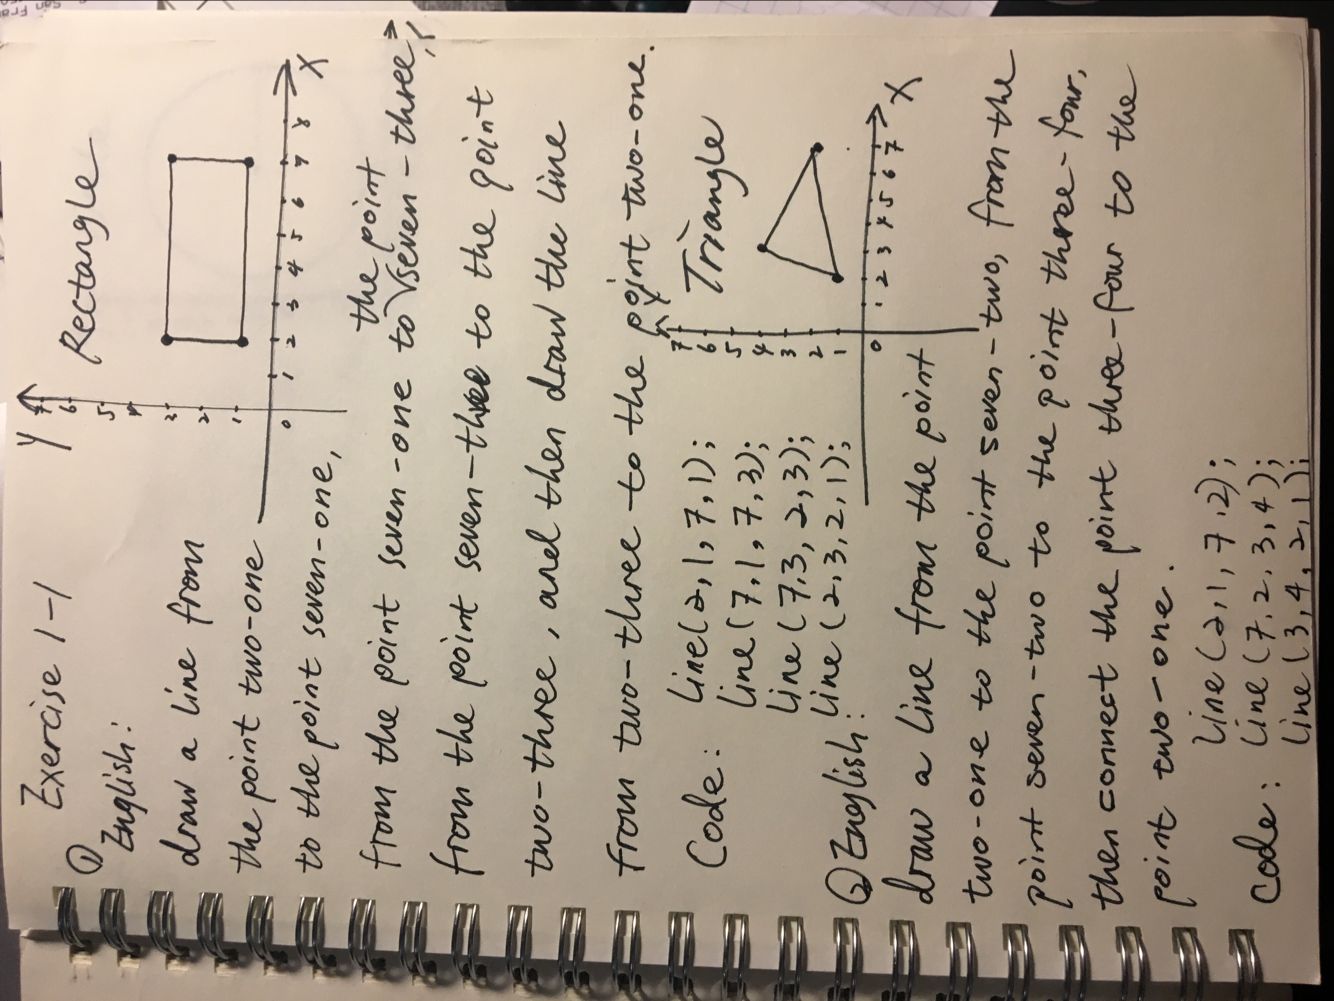 Exercise 1-1
①
English:
draw a line from
the point two-one
to the point seven-one,
the point
from the point seven-one to √seven-three,
from the point seven-three to the point
two-three, and then draw the line
from two-three to the point two-one.
Y
7
6
5
4
3
2
1
0 1 2 3 4 5 6 7 8 X
Rectangle
Code: line(2,1,7,1);
line(7,1,7,3);
line(7,3,2,3);
line(2,3,2,1);
Y
7
6
5
4
3
2
1
0 1 2 3 4 5 6 7 X
Triangle
② English:
draw a line from the point
two-one to the point seven-two, from the
point seven-two to the point three-four,
then connect the point three-four to the
point two-one.
line(2,1,7,2);
code: line(7,2,3,4);
line(3,4,2,1);